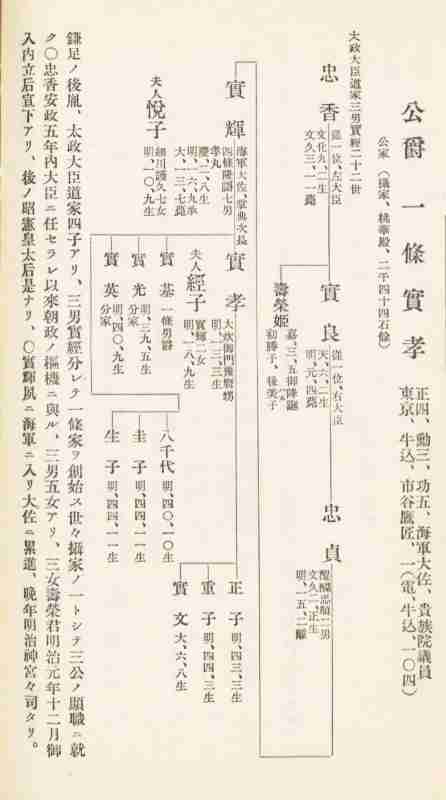 公爵 一條實孝
正四、勳三、功五、海軍大佐、貴族院議員
東京、牛込、市谷鷹匠、一(電、牛込、一〇四)
公家(攝家、桃華殿、二千四十四石餘)
太政大臣道家三男實經二十二世
忠香
從一位、左大臣
文化九、二生
文久三、一一薨
實良
從一位、右大臣
天、六、二生
明、元、四薨
忠貞
醍醐忠順二男
文久二、正生
明、一五、二離
壽榮姬
嘉、三、五御降誕
初勝子、後美子
實輝
海軍大佐、掌典次長
四條隆謌七男
孝丸
慶、二、八生
明、一六、九承
大、一三、七薨
夫人 悅子
細川護久七女
明、一〇、九生
實孝
大炊御門幾麿甥
明、一三、三生
夫人 經子
實輝二女
明、一八、九生
實基
一條男爵
實光
明、三九、五生
分家
實英
明、四〇、九生
分家
八千代 明、四〇、一〇生
圭子 明、四四、一一生
生子 明、四四、一一生
正子 明、四三、三生
重子 明、四四、三生
實文 大、六、八生
鎌足ノ後胤、太政大臣道家四子アリ、三男實經分レテ一條家ヲ創始ス世々攝家ノ一トシテ三公ノ顯職ニ就
ク〇忠香安政五年內大臣ニ任セラレ以來朝政ノ樞機ニ與ル、三男五女アリ、三女壽榮君明治元年十二月御
入內立后宣下アリ、後ノ昭憲皇太后是ナリ、〇實輝夙ニ海軍ニ入リ大佐ニ累進、晚年明治神宮々司タリ。